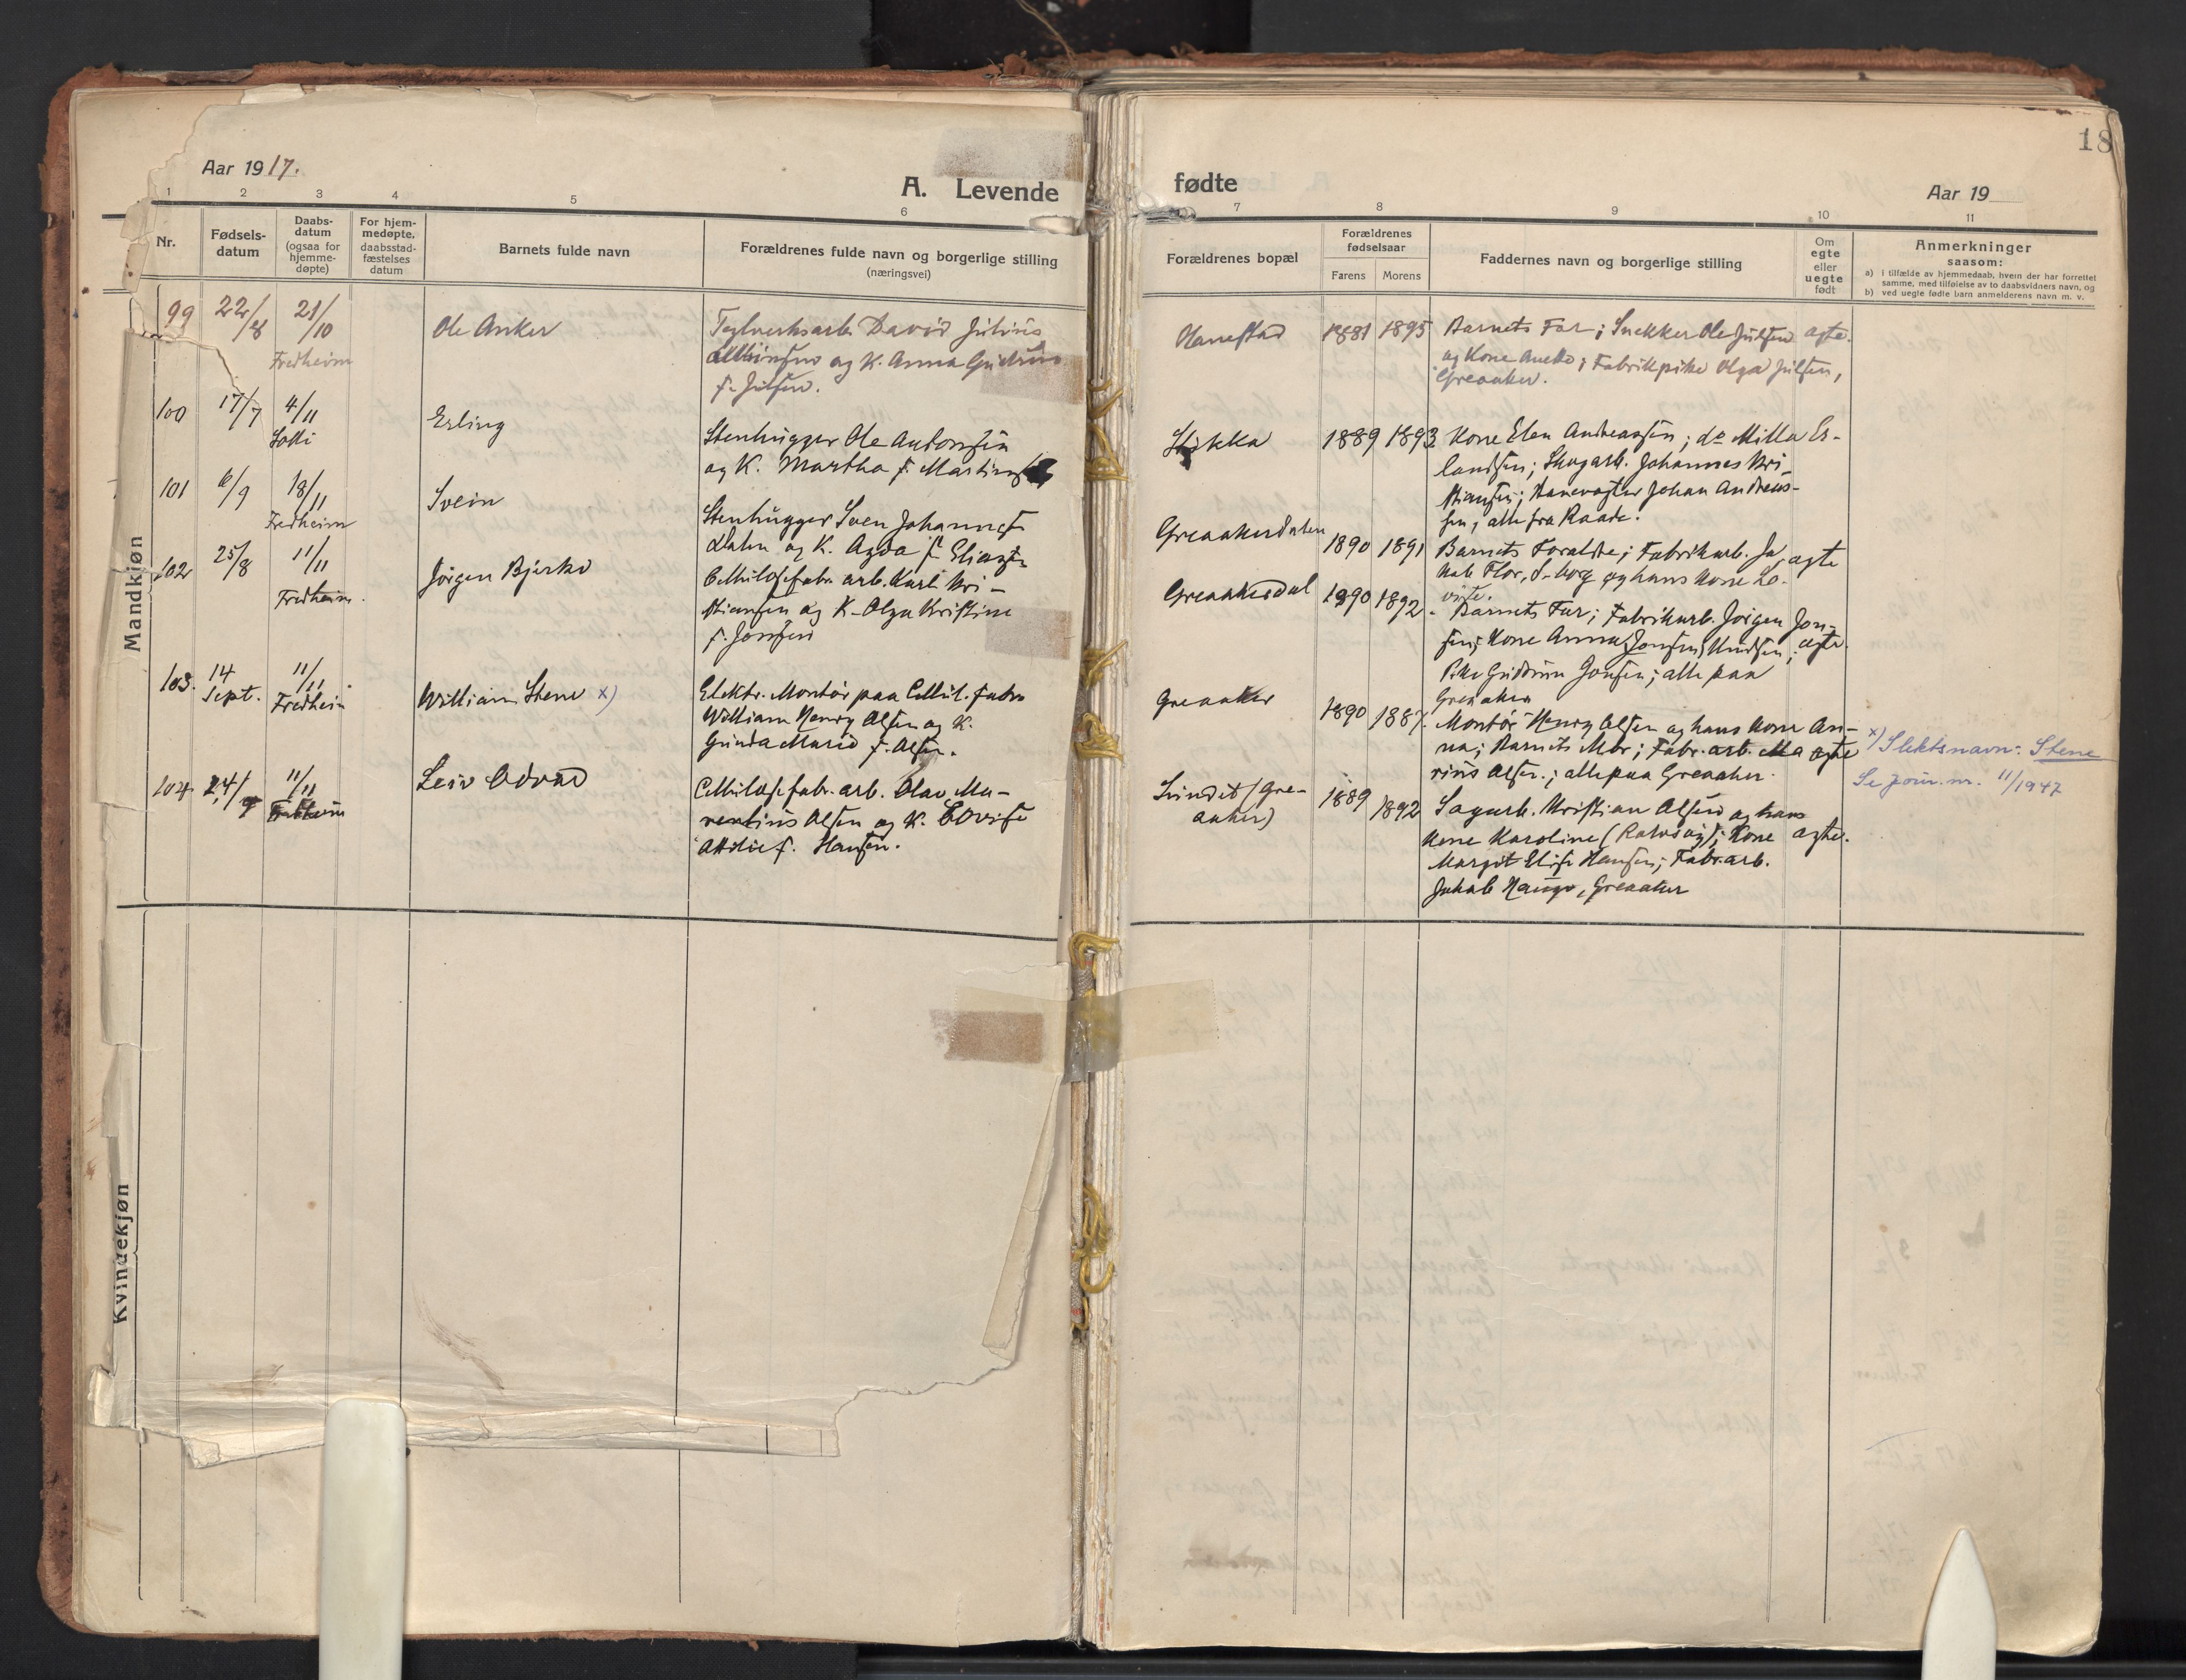 18
Aar 1917.
A. Levende
fødte
Aar 19
1 2 3 4 5 6 7 8 9 10 11
Nr.
Fødsels-
datum
Daabs-
datum
(ogsaa for
hjemme-
døpte)
For hjem-
medøpte.
daabsstad-
fæstelses
datum
Barnets fulde navn
Forældrenes fulde navn og borgerlige stilling
(næringsvei)
Forældrenes bopæl
Forældrenes
fødselsaar
Farens Morens
Faddernes navn og borgerlige stilling
Om
egte
eller
uegte
født
Anmerkninger
saasom:
a) i tilfælde av hjemmedaab, hvem der har forrettet
samme, med tilføielse av to daabsvidners navn, og
b) ved uegte fødte barn anmelderens navn m. v.
Mandkjøn
99 22/8 21/10
Fredheim
Ole Anker
Teglverksarb. David Julius
og K. Anna Gudrun
f. Julsen.
Hanestad
1881 1895
Barnets Far; Snekker Ole Julsen
og Kone Anette; Fabrikpike Olga Julsen,
Greaaker.
egte.
100 17/7 4/11
Solli
Erling
Stenhugger Ole Antonsen
og K. Martha f. Martinsen
Stikka
1889 1893
Kone Elen Andreassen; do Milla Er-
landsen; Skogarb. Johannes Kri-
stiansen; Banevogter Johan Andreas-
sen, alle fra Raade.
101 6/9 18/11
Fredheim
Svein
Stenhugger Sven Johannes
Dalen og K. Agda f. Eliasen
Greaakerdalen
1890 1891
Barnets Foraldre; Fabrikarb. Ja
kob Flor, S-borg og hans Kone Lo-
vise.
egte
102 25/8 11/11
Fredheim.
Jörgen Bjerke
Cellulosefabr. arb. Karl Kri-
stiansen og K. Olga Kristine
f. Jonsen
Greaakerdal
1890 1892
Barnets Far; Fabrikarb. Jörgen Jon-
sen; Kone Anna Jonsen Knudsen;
Pike Gudrun Jonsen; alle paa
Greaaker
egte.
103. 14
Sept.
11/11.
Fredheim
William Stene x)
Elektr. Montör paa Cellul. fabr.
William Henry Olsen og K.
Gunda Marie f. Olsen.
Greaaker
1890 1887.
Montör Henry Olsen og hans Kone An-
na; Barnets Mor; Fabr. arb. Ma
rius Olsen.; alle paa Greaaker.
egte
x) Slektsnavn: Stene
Se jour. nr. 11/1947
104 24/9 11/11
Fredheim
Leiv Odvar
Cellulosefabr. arb. Olav Ma-
rentius Olsen og K. Lovise
Attilie f. Hansen.
Lundet (Gre-
aaker)
1889 1892
Sagarb. Kristian Olsen og hans
Kone Karoline; Kone
Margit Elise Hansen; Fabr. arb.
Jakob Hauge, Greaaker
egte.
Kvindekjøn